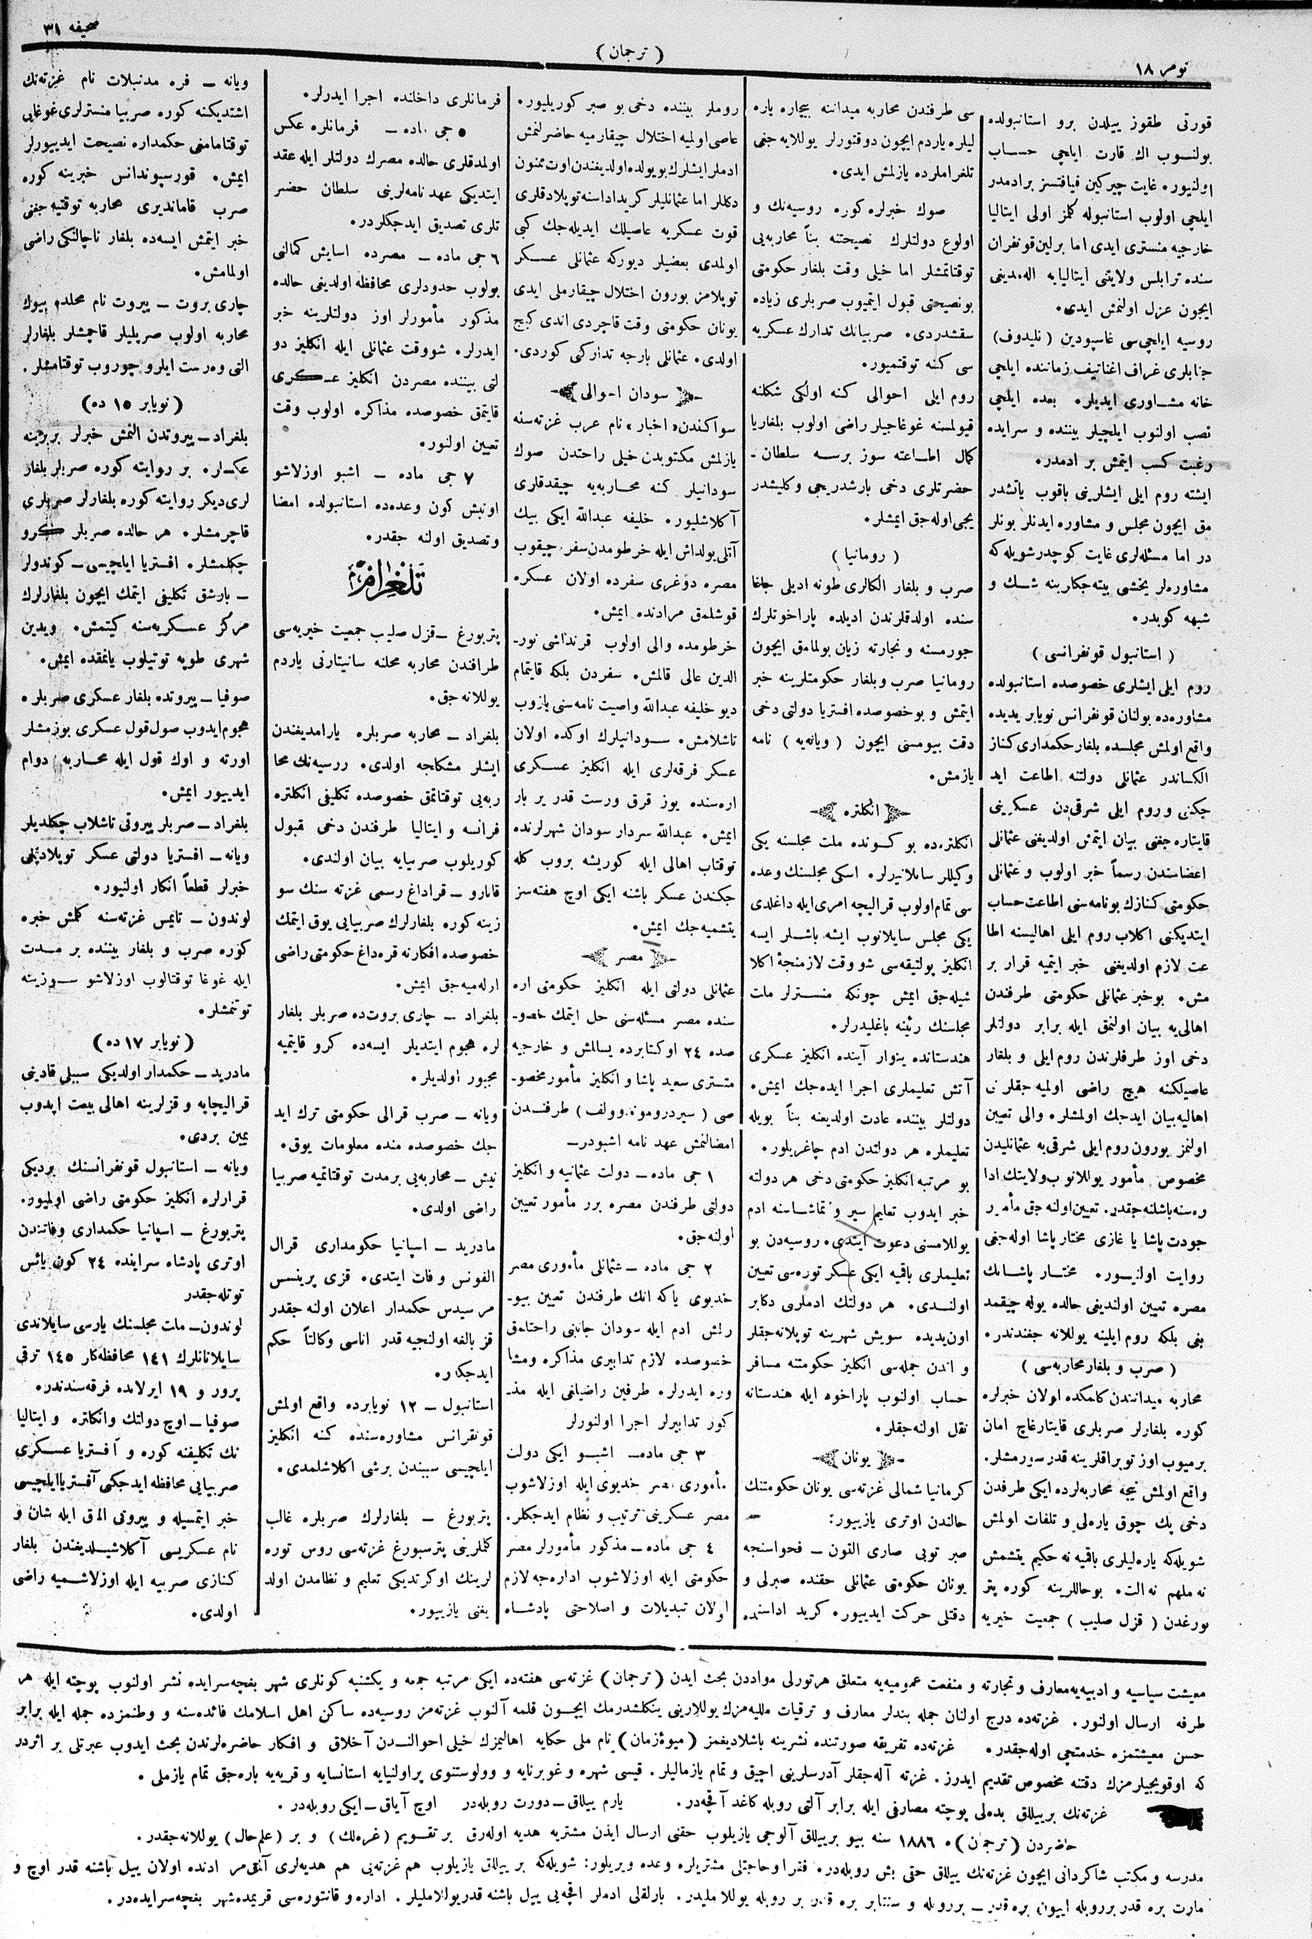 صحیفه ٣١
( ترجمان )
نومر ١٨
قورتی طقوز ییلدن برو استانبولده
بولنوب اك قارت ایلچی حساب
اولنیور. غایت چیركین قیافتسز برادمدر
ایلچی اولوب استانبوله كلمز اولی ایتالیا
خارجیه منستری ایدی اما برلین قونفران
سنده ترابلس ولایتنی ایتالیایه الهمدیغی
ایچون عزل اولنمش ایدی.
روسیه ایلچی‌سی غاسپودین ( نلیدوف )
جنابلری غراف اغناتیف زماننده ایلچی
خانه مشاوری ایدیلر. بعده ایلچی
نصب اولنوب ایلچیلر بیننده و سرایده
رغبت كسب ایتمش بر ادمدر.
ایشته روم ایلی ایشلرینی باقوب یاتشدر
مق ایچون مجلس و مشاوره ایدنلر بونلر
در اما مسئله‌لری غایت كوچدر شویله‌كه
مشاوره‌لر یخشی بیته‌جكلرینه شك و
شبهه كوبدر.
( استانبول قونفرانسی )
روم ایلی ایشلری خصوصده استانبولده
مشاوره‌ده بولنان قونفرانس نویابر یدیده
واقع اولمش مجلسده بلغار حكمداری كناز
الكساندر عثمانلی دولتنه اطاعت اید
جكنی و روم ایلی شرقی‌دن عسكرینی
قایتاره‌جغنی بیان ایتمش اولدیغنی عثمانلی
اعضاسندن رسماً خبر اولوب و عثمانلی
حكومتی كنازك بونامه‌سنی اطاعت حساب
ایتدیكنی اكلاب روم ایلی اهالیسنه اطا
عت لازم اولدیغنی خبر ایتمیه قرار بر
مش. بوخبر عثمانلی حكومتی طرفندن
اهالی‌یه بیان اولنمق ایله برابر دولتلر
دخی اوز طرفلرندن روم ایلی و بلغار
عاصیلكنه هیچ راضی اولمیه جقلرنی
اهالیه بیان ایدجك اولمشلر. والی تعیین
اولنمز بورون روم ایلی شرقی‌یه عثمانلیدن
مخصوص مأمور یوللانوب ولایتك ادا
ره‌سنه باشلنه جقدر. تعیین اوله جق مأمور
جودت پاشا یا غازی مختار پاشا اوله‌جغی
روایت اولنیور. مختار پاشانك
مصره تعیین اولندیغی حالده یوله چیقمد
یغی بلكه روم ایلینه یوللانه جغندندر.
( صرب و بلغار محاربه‌سی )
محاربه میدانندن كلمكده اولان خبرلره
كوره بلغارلر صربلری قایتارغاچ امان
برمیوب اوز توپراقلرینه قدر سورمشلر.
واقع اولمش نیجه محاربه‌لرده ایكی طرفدن
دخی پك چوق یاره‌لی و تلفات اولمش
شویله‌كه یاره‌لیلری باقمیه نه حكیم یتشمش
نه ملهم نه الت. بوحاللرینه كوره پتر
بورغدن ( قزل صلیب ) جمعیت خیریه
سی طرفندن محاربه میداننه بیچاره یاره
لیلره یاردم ایچون دوقتورلر یوللایه جغی
تلغراملرده یازلمش ایدی.
صوك خبرلره كوره روسیه‌نك و
اولوغ دولتلرك نصیحتنه بناً محاربه‌یی
توقتاتمشلر اما خیلی وقت بلغار حكومتی
بونصیحتی قبول ایتمیوب صربلری زیاده
سقشدردی. صربیانك تدارك عسكریه
سی كنه توقتمیور.
روم ایلی احوالی كنه اولكی شكلنه
قیولمسنه غوغاجیلر راضی اولوب بلغاریا
كمال اطاعته سوز برسه سلطان-
حضرتلری دخی بارشدریجی و كلیشدر
یجی اوله جق ایمشلر.
( رومانیا )
صرب و بلغار الكالری طونه ادیلی جاغا
سنده اولدقلرندن ادیلده پاراخوتلرك
جورمسنه و تجارته زیان بولمامق ایچون
رومانیا صرب و بلغار حكومتلرینه خبر
ایتمش و بوخصوصده افستریا دولتی دخی
دقت بیومسنی ایچون ( ویانه‌یه ) نامه
یازمش.
انكلتره
انكلتره‌ده بو كونده ملت مجلسنه یكی
وكیللر سایلانیرلر. اسكی مجلسنك وعده
سی تمام اولوب قرالیچه امری ایله داغلدی
یكی مجلس سایلانوب ایشه باشلر ایسه
انكلیز پولتیقه‌سی شو وقت لازمنجۀ اكلا
شیله جق ایمش چونكه منسترلر ملت
مجلسنك رئینه باغلیدرلر.
هندستانده ینوار آینده انكلیز عسكری
آتش تعلیملری اجرا ایده‌جك ایمش.
دولتلر بیننده عادت اولدیغنه بناً بویله
تعلیملره هر دولتدن ادم چاغریلور.
بو مرتبه انكلیز حكومتی دخی هر دولته
خبر ایدوب تعلیم سیر و تماشاسنه ادم
یوللامسنی دعوت ایتدی. روسیه‌دن بو
تعلیملری باقمیه ایكی عسكر توره‌سی تعیین
اولندی. هر دولتك ادملری دكابر
اون‌یدیده سویش شهرینه توپلانه جقلر
و اندن جمله‌سی انكلیز حكومتنه مسافر
حساب اولنوب پاراخود ایله هندستانه
نقل اولنه جقلر.
یونان
كرمانیا شمالی غزته‌سی یونان حكومتنك
حالندن اوتری یازییور:
صبر توبی صاری التون – فحواسنجه
یونان حكومتی عثمانلی حقنده صبرلی و
دقتلی حركت ایدییور. كرید اداسنده
روملر بیننده دخی بو صبر كوریلیور.
عاصی اولمیه اختلال چیقارمیه حاضرلنمش
ادملر ایشلرك بویولده اولدیغندن اوت ممنون
دكللر اما عثمانلیلر كرید اداسنه توپلادقلری
قوت عسكریه عاصیلك ایدیله‌جك كبی
اولمدی بعضیلر دیورکه عثمانلی عسكر
توپلامز بورون اختلال چیقارملی ایدی
یونان حكومتی وقت قاچردی اندی كیچ
اولدی. عثمانلی بارجه تداركنی كوردی.
سودان احوالی
سواكندن «اخبار» نام عرب غزته‌سنه
یازلمش مكتوبدن خیلی راحتدن صوك
سودانیلر كنه محاربه‌یه چیقدقلری
آكلاشلیور. خلیفه عبدالله ایكی بیك
آتلی یولداش ایله خرطومدن سفر چیقوب
مصره دوغری سفرده اولان عسكره
قوشلمق مرادنده ایمش.
خرطومده والی اولوب قرنداشی نور-
الدین عالی قالمش. سفردن بلكه قایتمام
دیو خلیفه عبدالله واصیت نامه‌سنی یازوب
تاشلامش. سودانیلرك اوكده اولان
عسكر فرقه‌لری ایله انكلیز عسكری
اره‌سنده یوز قرق ورست قدر یر بار
ایمش. عبدالله سردار سودان شهرلرنده
توقتاب اهالی ایله كوریشه بروب كله
جكندن عسكر باشنه ایكی اوچ هفته‌سز
یتشمیه جك ایمش.
مصر
عثمانلی دولتی ایله انكلیز حكومتی اره
سنده مصر مسئله‌سنی حل ایتمك خصو-
صده ٢٤ اوكتابرده یسالمش و خارجیه
منستری سعید پاشا و انكلیز مأمور مخصو-
صی ( سیردرومونه‌وولف ) طرفندن
امضالنمش عهد نامه اشبودر–
١ جی ماده– دولت عثمانیه و انكلیز
دولتی طرفندن مصره برر مأمور تعیین
اولنه جق.
٢ جی ماده– عثمانلی مأموری مصر
خدیوی یاكه انك طرفندن تعیین بیو-
رلمش ادم ایله سودان جانبنی راحتلمق
خصوصده لازم تدابیری مذاكره و مشا
وره ایدرلر. طرفین راضیلغی ایله مذ-
كور تدابیرلر اجرا اولنورلر
٣ جی ماده– اشبو ایكی دولت
مأموری مصر خدیوی ایله اوزلاشوب
مصر عسكرینی ترتیب و نظام ایدجكلر.
٤ جی ماده– مذكور مأمورلر مصر
حكومتی ایله اوزلاشوب اداره‌جه لازم
اولان تبدیلات و اصلاحتی پادشاه
فرمانلری داخلنده اجرا ایدرلر.
٥ جی ماده – فرمانلره عكس
اولمدقلری حالده مصرك دولتلر ایله عقد
ایتدیكی عهد نامه‌لرینی سلطان حضر
تلری تصدیق ایدجكلردر.
٦ جی ماده – مصرده اسایش كمالنی
بولوب حدودلری محافظه اولدیغی حالده
مذكور مأمورلر اوز دولتلرینه خبر
ایدرلر. شووقت عثمانلی ایله انكلیز دو
لتی بیننده مصردن انكلیز عسكری
قایتمق خصوصده مذاكره اولوب وقت
تعیین اولنور.
٧ جی ماده – اشبو اوزلاشو
اونبش كون وعده‌ده استانبولده امضا
و تصدیق اولنه جقدر.
تلغرام
پتربورغ – قزل صلیب جمعیت خیریه‌سی
طرفندن محاربه محلنه سانیتارنی یاردم
یوللانه جق.
بلغراد – محاربه صربلره یارامدیغندن
ایشلر مشكلجه اولدی. روسیه‌نك محا
ربه‌یی توقتاتمق خصوصده تكلیفی انكلتره
فرانسه و ایتالیا طرفندن دخی قبول
كوریلوب صربیایه بیان اولندی.
قاتارو – قراداغ رسمی غزته سنك سو
زینه كوره بلغارلرك صربیایی یوق ایتمك
خصوصده افكارنه قره‌داغ حكومتی راضی
اوله‌میه جق ایمش.
بلغراد – چاری بروت‌ده صربلر بلغار
لره هجوم ایتدیلر ایسه‌ده كرو قایتمیه
مجبور اولدیلر.
ویانه – صرب قرالی حكومتی ترك اید
جك خصوصده منده معلومات یوق.
نیش – محاربه‌یی برمدت توقتاتمیه صربیا
راضی اولدی.
مادرید – اسپانیا حكومداری قرال
الفونس وفات ایتدی. قزی پرینسس
مرسیدس حكمدار اعلان اولنه جقدر
قز بالغه اولنجیه قدر اناسی وكالتاً حكم
ایدجكلر.
استانبول – ١٢ نویابرده واقع اولمش
قونفرانس مشاوره‌سنده كنه انكلیز
ایلچیسی سببندن برشی اكلاشلمدی.
پتربورغ – بلغارلرك صربلره غالب
كلملرینی پترسبورغ غزته‌سی روس توره
لرینك اوكرتدیكی تعلیم و نظامدن اولد
یغنی یازییور.
ویانه – قره مدنیلات نام غزته‌نك
اشتدیكنه كوره صربیا منسترلری غوغایی
توقتامامغی حكمداره نصیحت ایدییورلر
ایمش. قورسپوندانس خبرینه كوره
صرب قاماندیری محاربه توقتیه جغنی
خبر ایتمش ایسه‌ده بلغار ناچالنكی راضی
اولمامش.
چاری بروت – پیروت نام محلده بیوك
محاربه اولوب صربلیلر قاچمشلر بلغارلر
التی وه‌رست ایلرو چوروب توقتامشلر.
( نویابر ١٥ ده )
بلغراد – پیروتدن النمش خبرلر بربرینه
عكسلر. بر روایته كوره صربلر بلغار
لری دیكر روایته كوره بلغارلر صربلری
قاچرمشلر. هر حالده صربلر كرو
چكلمشلر. افستریا ایلچیسی – كوندولر
– بارشق تكلیفی ایتمك ایچون بلغارلرك
مركز عسكریه‌سنه كیتمش. ویدین
شهری طوپه توتیلوب یانمقده ایمش.
صوفیا – پیروتده بلغار عسكری صربلره
هجوم ایدوب صول قول عسكری بوزمشلر
اورته و اوك قول ایله محاربه دوام
ایدییور ایمش.
بلغراد – صربلر پیروتی تاشلاب چكلدیلر
ویانه – افستریا دولتی عسكر توپلادیغی
خبرلر قطعاً انكار اولنیور.
لوندون – تایمس غزته‌سنه كلمش خبره
كوره صرب و بلغار بیننده بر مدت
ایله غوغا توقتالوب اوزلاشو سوزینه
توتنمشلر.
( نویابر ١٧ ده )
مادرید – حكمدار اولدیكی سببلی قادینی
قرالیچایه و قزلرینه اهالی بیعت ایدوب
یمین بردی.
ویانه – استانبول قونفرانسنك بردیكی
قرارلره انكلیز حكومتی راضی اولمیور.
پتربورغ – اسپانیا حكمداری وفاتندن
اوتری پادشاه سراینده ٢٤ كون یائس
توتله جقدر
لوندون– ملت مجلسنك یارسی سایلاندی
سایلانانلرك ١٤١ محافظه‌كار ١٤٥ ترقی
پرور و ١٩ ایرلانده فرقه‌سندندر.
صوفیا – اوچ دولتك وانكلتره و ایتالیا
نك تكلیفنه كوره و آفستریا عسكری
صربیایی محافظه ایدجكی آفستریا ایلچیسی
خبر ایتمسیله و پیروتی المق ایله شان و
نام عسكریسی آكلاشیلدیغندن بلغار
كنازی صربیه ایله اوزلاشمیه راضی
اولدی.
معیشت سیاسیه و ادبیه‌یه معارف و تجارته و منفعت عمومیه‌یه متعلق هرتورلی مواددن بحث ایدن ( ترجمان ) غزته‌سی هفته‌ده ایكی مرتبه جمعه و یكشنبه كونلری شهر بغچه‌سرایده نشر اولنوب پوچته ایله هر
طرفه ارسال اولنور. غزته‌ده درج اولنان جمله بندلر معارف و ترقیات ملیه‌مزك یوللارینی ینكلشدرمك ایچون قلمه آلنوب غزته‌مز روسیه‌ده ساكن اهل اسلامك فائده‌سنه و وطنمزده جمله ایله برابر
حسن معیشتمزه خدمتچی اوله جقدر. غزته‌ده تفریقه صورتنده نشرینه باشلادیغمز ( میوۀ زمان ) نام ملی حكایه اهالیمزك خیلی احوالندن آخلاق و افكار حاضره‌لرندن بحث ایدوب عبرتلی بر اثردر
كه اوقویجیلرمزك دقتنه مخصوص تقدیم ایدرز. غزته آله جقلر آدرسلرینی اچیق و تمام یازمالیلر. قیسی شهره و غوبرنایه و وولوستنوی پراولنیایه استانسایه و قریه‌یه باره جق تمام یازملی.
غزته‌نك بر ییللق بده‌لی پوچته مصارفی ایله برابر آلتی روبله كاغد آقچه‌در. یارم ییللاق– دورت روبله‌در اوچ آیاق– ایكی روبله‌در.
حاضردن ( ترجمان )ه ١٨٨٦ سنه بیو بر ییللق آلوجی یازیلوب حقنی ارسال ایدن مشتریه هدیه اوله‌رق بر تقویم ( غره‌لك ) و بر ( علم حال ) یوللانه جقدر.
مدرسه و مكتب شاكردانی ایچون غزته‌نك ییللق حقی بش روبله‌در. فقرا و حاجتلی مشتریلره وعده ویریلور: شویله‌كه بر ییللق یازیلوب هم غزته‌یی هم هدیه‌لری آلنقی‌مز ادنده اولان ییل باشنه قدر اوچ و
مارت بره قدر برروبله اییون بره قدر – برروبله و سنتابر بره قدر بر روبله یوللاملیدر. بارلقلی ادملر اقچه‌یی ییل باشنه قدر یوللاملیلر. اداره و قانتوره‌سی قریمده شهر بغچه‌سرایده‌در.